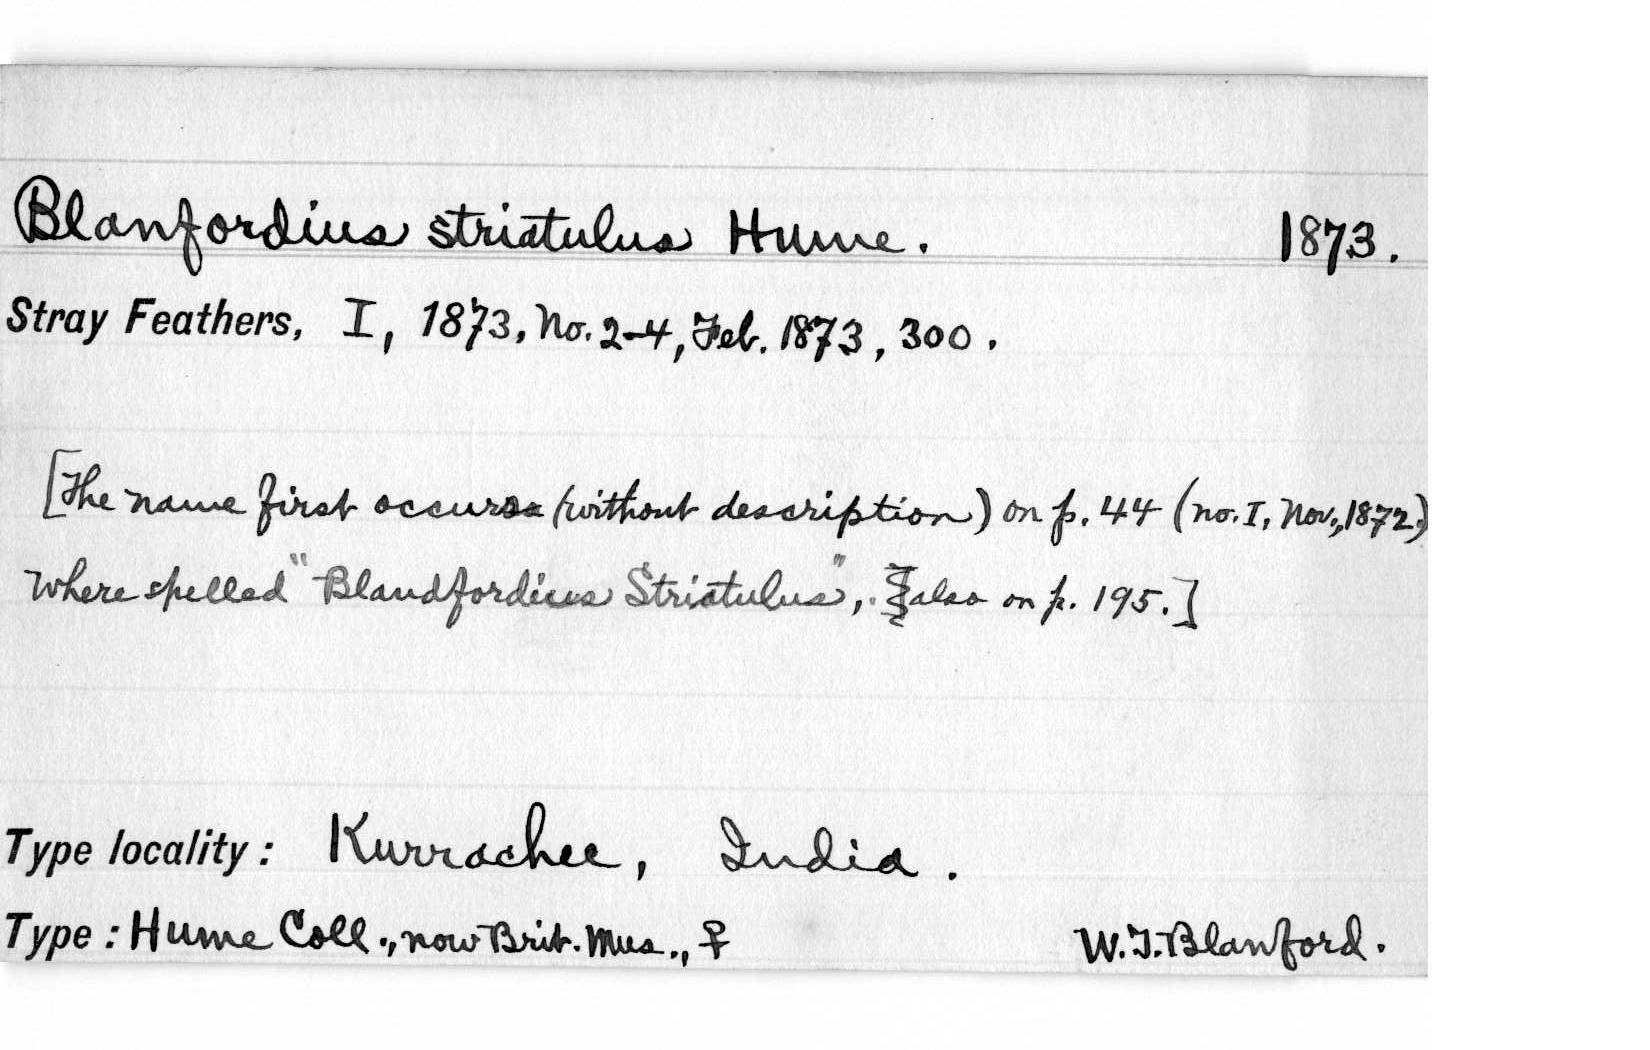 Blanfordius striatulus Hume. 1873.
Stray Feathers, I, 1873, No. 2-4, Feb. 1873, 300.
[The name first occurs (without description) on p. 44 (no. I, Nov., 1872)
where spelled "Blandfordius Striatulus", also on p. 195.]
Type locality: Kurrachee, India.
Type: Hume Coll., now Brit. Mus., ♀ W.T. Blanford.